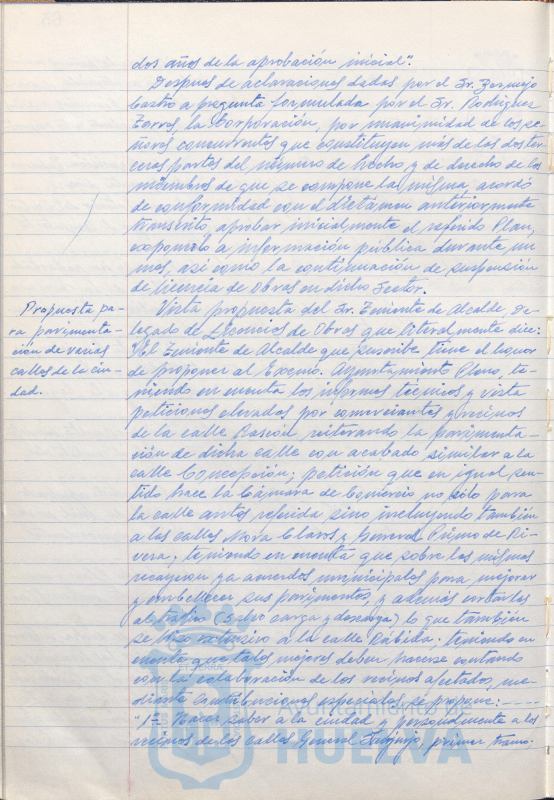 dos años de la aprobación inicial".
Despues de aclaraciones dadas por el Sr. Bermejo
Castro a pregunta formulada por el Sr. Rodríguez
Torres, la Corporación, por unanimidad de los se-
ñores concurrentes que constituyen más de las dos ter-
ceras partes del número de hecho y de derecho de los
miembros de que se compone la misma, acordó
de conformidad con el dictamen anteriormente
transcrito, aprobar inicialmente el referido Plan,
exponerlo a información pública durante un
mes, así como la continuación de suspensión
de licencia de obras en dicho Sector.
Propuesta pa-
ra pavimenta-
ción de varias
calles de la ciu-
dad.
Vista propuesta del Sr. Teniente de Alcalde, De-
legado de Licencias de Obras que literalmente dice:
"El Teniente de Alcalde que suscribe tiene el honor
de proponer al Excmo. Ayuntamiento Pleno, te-
niendo en cuenta los informes técnicos y vista
peticiones elevadas por comerciantes y vecinos
de la calle Rascón reiterando la pavimenta-
ción de dicha calle con acabado similar a la
calle Concepción; petición que en igual sen-
tido hace la Cámara de Comercio no sólo para
la calle antes referida sino incluyendo también
a las calles Mora Claros y General Primo de Ri-
vera; teniendo en cuenta que sobre las mismas
recayeron ya acuerdos municipales para mejorar
y embellecer sus pavimentos, y además evitarles
el tráfico (salvo carga y descarga) lo que también
se hizo extensivo a la calle Rábida; teniendo en
cuenta que tales mejoras deben hacerse contando
con la colaboración de los vecinos afectados, me-
diante contribuciones especiales se propone:----
"1º= Hacer saber a la ciudad y personalmente a los
vecinos de las calles General primer tramo
Ayuntamiento de
HUELVA